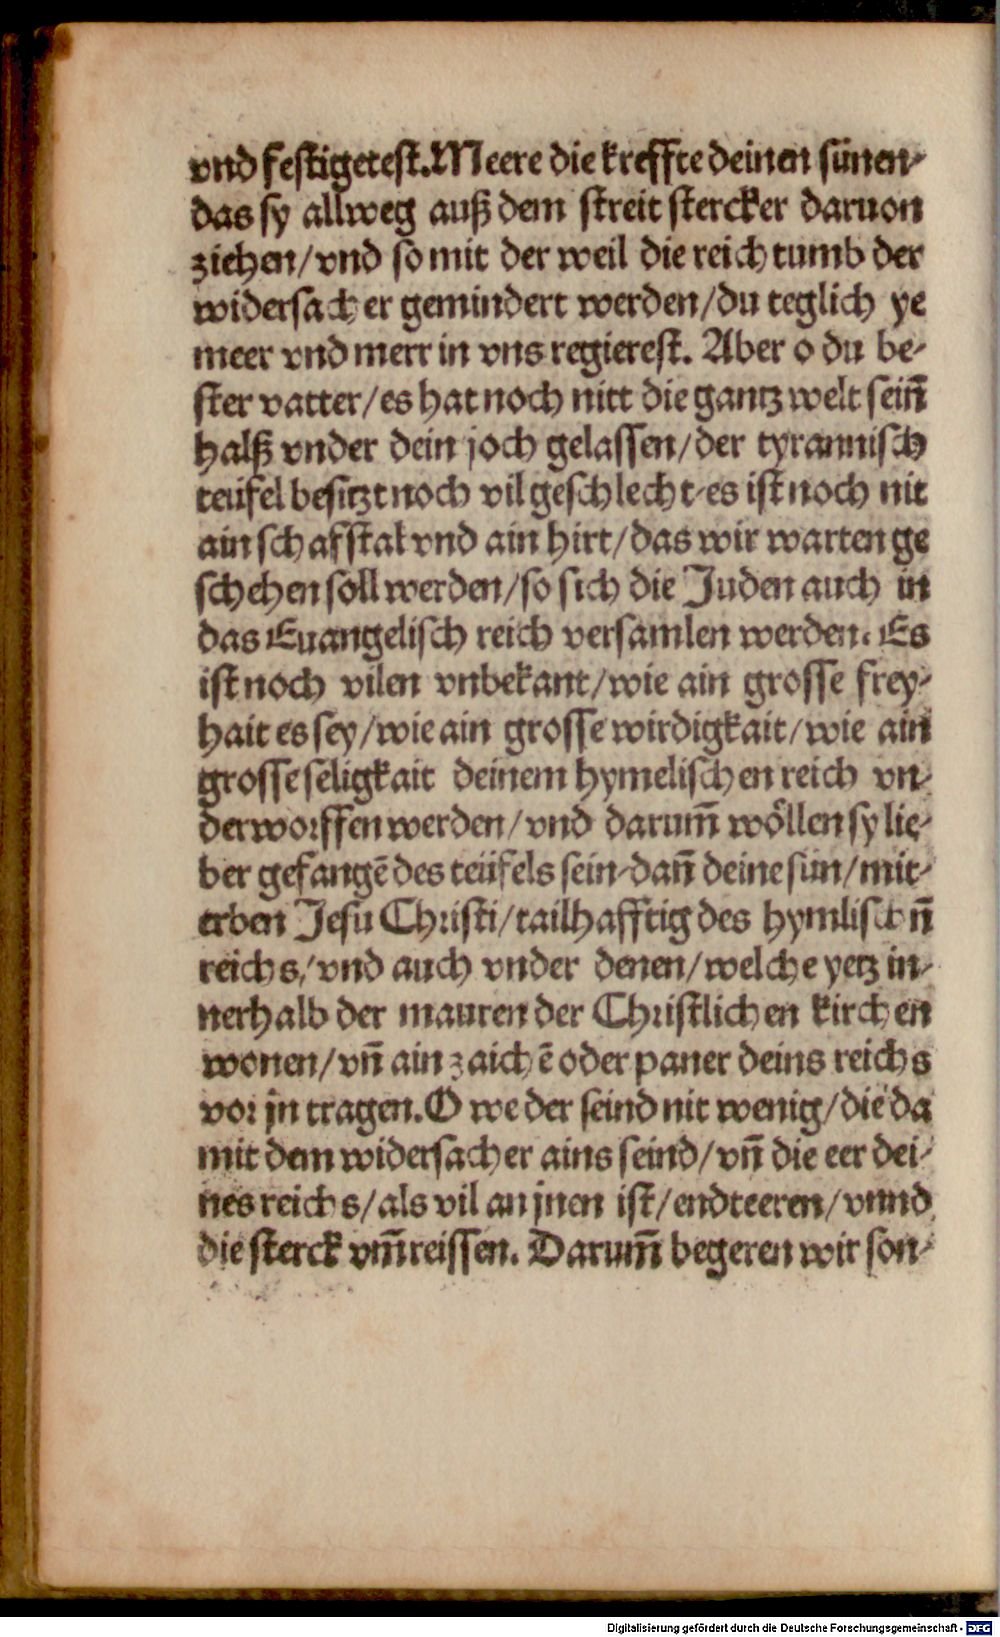 vnd festigetest. Meere die kreffte deinen sünen-
das sy allweg auß dem streit stercker daruon
ziehen/ vnd so mit der weil die reich tumb der
widersacher gemindert werden/ du teglich ye
meer vnd merr in vns regierest. Aber o du be-
ster vatter/ es hat noch nitt die gantz welt sein̄
halß vnder dein joch gelassen/ der tyrannisch
teüfel besitzt noch vil geschlecht-es ist noch nit
ain schafstal vnd ain hirt/ das wir warten ge
schehen soll werden/ so sich die Juden auch in
das Euangelisch reich versamlen werden. Es
ist noch vilen vnbekant/ wie ain grosse frey-
hait es sey/ wie ain grosse wirdigkait/ wie ain
grosse seligkait deinem hymelischen reich vn-
derworffen werden/ vnd darum̄ wöllen sy lie-
ber gefangē des teüfels sein-dan̄ deine sün/ mit-
erben Jesu Christi/ tailhafftig des hymlischn̄
reichs/ vnd auch vnder denen/ welche yetz in-
nerhalb der mauren der Christlichen kirchen
wonen/ vn̄ ain zaichē oder paner deins reichs
vor jn tragen. O we der seind nit wenig/ die da
mit dem widersacher ains seind/ vn̄ die eer dei-
nes reichs/ als vil an jnen ist/ endteeren/ vnnd
die sterck vm̄reissen. Darum̄ begeren wir son-
Digitalisierung gefördert durch die Deutsche Forschungsgemeinschaft - DFG